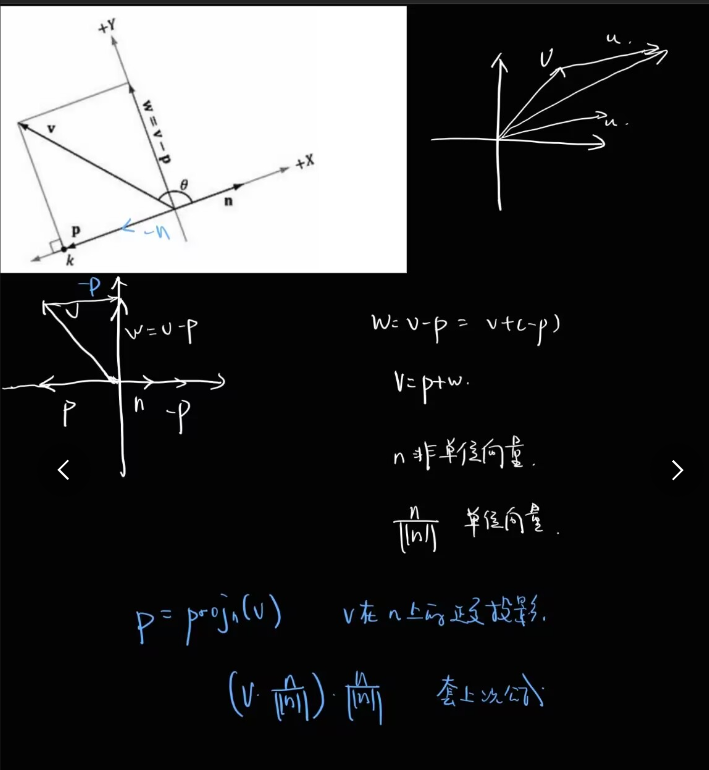 +Y
v
w = v - p
θ
+X
n
p
-n
k
v
u.
u.
-p
v
w=v-p
p
n
-p
w=v-p = v+(-p)
v=p+w.
n非单位向量.
n/||n|| 单位向量.
p=projₙ(v) v在n上的正交投影.
(v·n/||n||)·n/||n|| 套上次公式